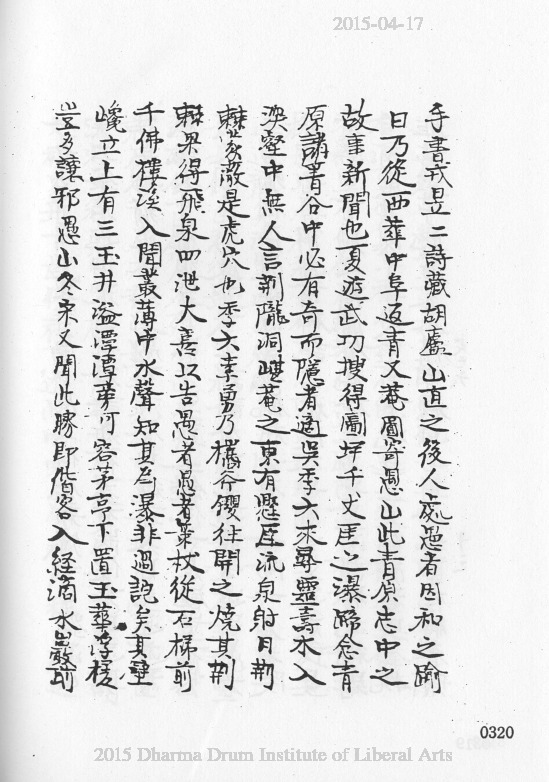 2015-04-17
手書戎昱二詩藏胡處山直之後人處愚者因和之踰
日乃從西華中阜返青又菴圖寄愚山此青原志中之
故事新聞也夏遊武功搜得圖坪千丈厓之瀑歸念青
原諸青谷中必有奇而隱者適吳季六來尋靈壽木入
渙壑中無人言荊隴洞𡾋菴之東有懸厓流泉射日荊
棘蒙蔽是虎穴也季六素勇乃攜斧钁往開之燒其荊
棘果得飛泉四泄大喜以告愚者愚者策杖從石梯前
千佛樓溪入聞叢薄中水聲知其為瀑非過說矣其壁
巉立上有三玉井溢潭潭旁可容茅亭下置玉華浮槎
豈多讓邪愚山冬末又聞此勝即偕客入経滴水巖前
0320
2015 Dharma Drum Institute of Liberal Arts